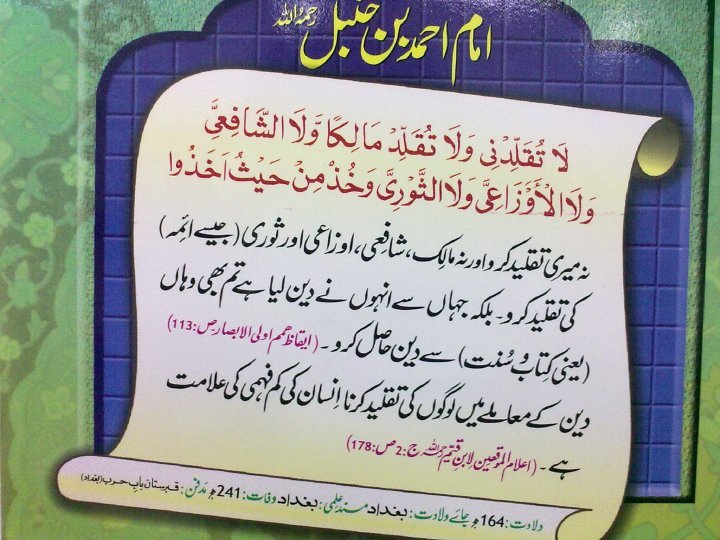 امام احمد بن حنبل رحمہ اللہ
لَا تُقَلِّدْنِی وَلَا تُقَلِّدْ مَالِكًا وَّلَا الشَّافِعِیَّ
وَلَا الْأَوْزَاعِیَّ وَلَا الثَّوْرِیَّ وَخُذْ مِنْ حَیْثُ اَخَذُوا
نہ میری تقلید کرو اور نہ مالِک، شافعی، اوزاعی اور ثوری (جیسے ائمہ)
کی تقلید کرو۔ بلکہ جہاں سے انہوں نے دین لیا ہے تم بھی وہاں
(یعنی کِتاب و سُنت) سے دین حاصل کرو۔ (ایقاظ ھمم اولی الابصار ص:113)
دین کے معاملے میں لوگوں کی تقلید کرنا اِنسان کی کم فہمی کی علامت
ہے۔ (اعلام الموقعین لابن قیّم رحمہ اللہ ج:2 ص:178)
ولادت: 164ھ جائے ولادت: بغداد مسند علمی: بغداد وفات: 241ھ مدفن: قبرستان باب حرب (بغداد)